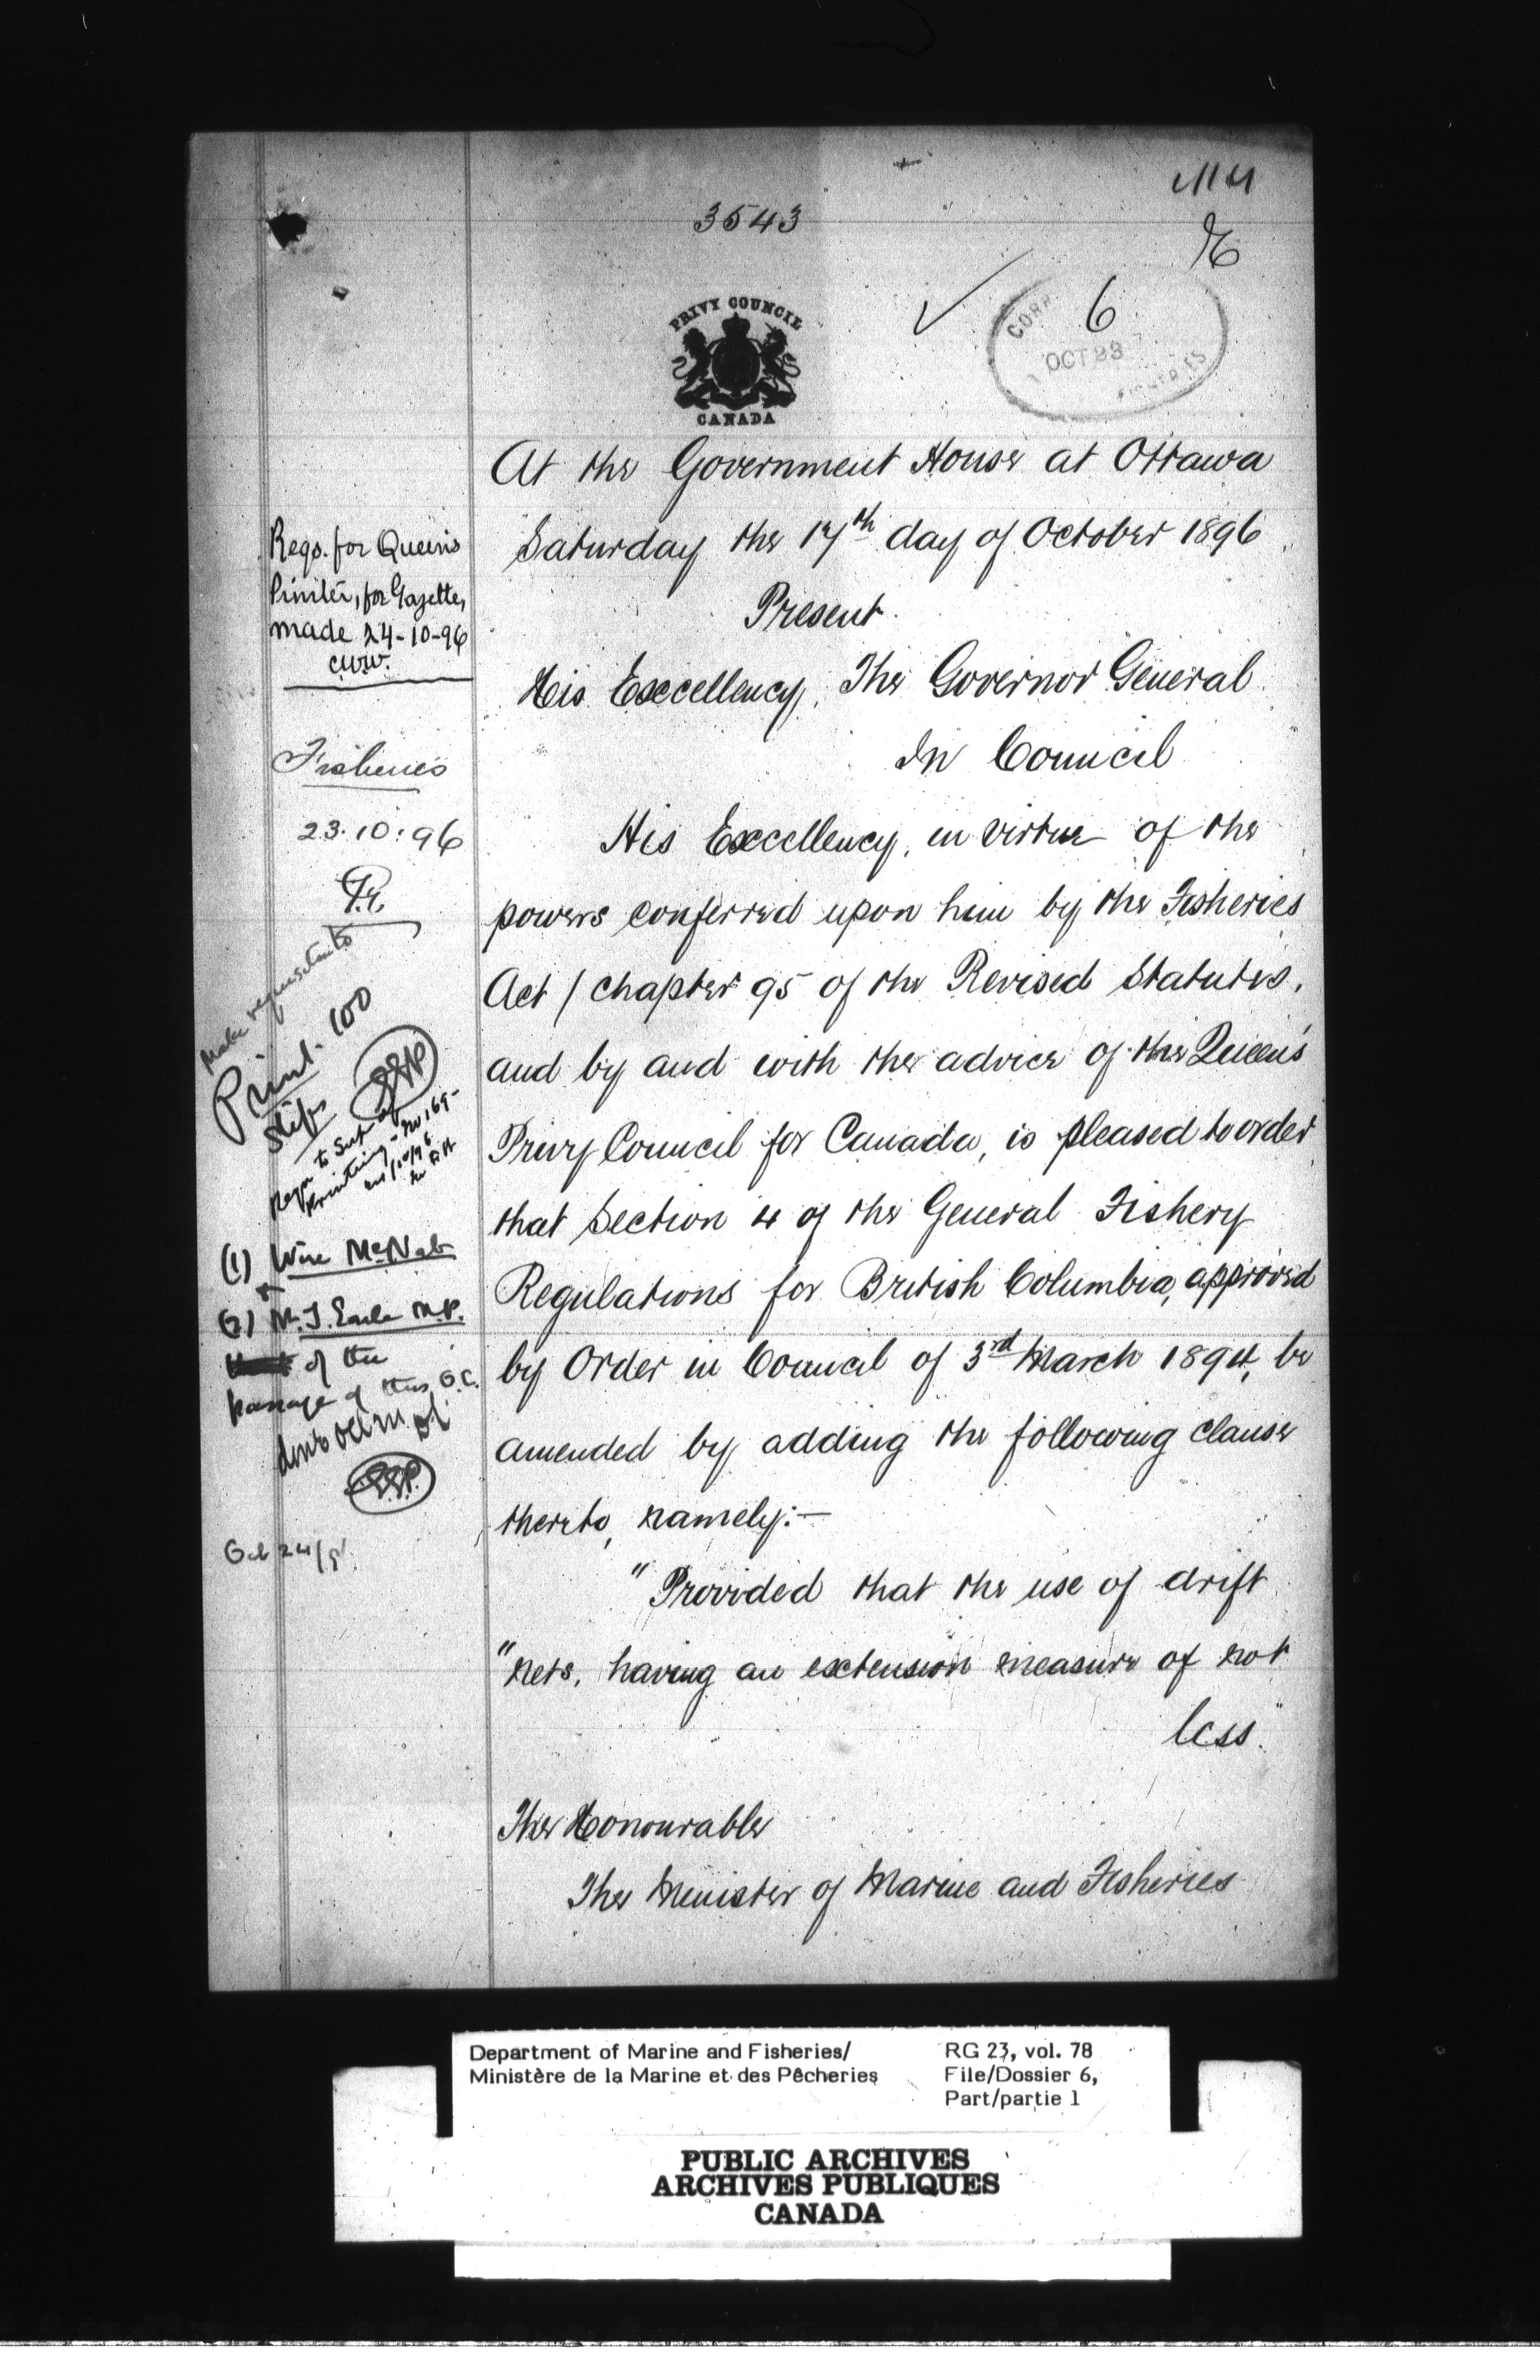 3543
6
OCT 23
FISHERIES
PRIVY COUNCIL
CANADA
At the Government House at Ottawa
Saturday the 17th day of October 1896
Present
His Excellency, The Governor General
In Council
His Excellency, in virtue of the
powers conferred upon him by the Fisheries
Act / Chapter 95 of the Revised Statutes,
and by and with the advice of the Queen's
Privy Council for Canada, is pleased to order
that Section 4 of the General Fishery
Regulations for British Columbia, approved
by Order in Council of 3rd March 1894, be
amended by adding the following clause
thereto, namely:—
"Provided that the use of drift
"nets, having an extension measure of not
less"
The Honourable
The Minister of Marine and Fisheries
Reqs. for Queen's
Printer, for Gazette,
made 24-10-96
Fisheries
23.10.96
Make requisition to
Print. 100
slips
Reqn to Supt of
Printing - No 169-
(1) Wire McNab
(2) Mr. T. Earle M.P.
of the
passage of this O.C.
Department of Marine and Fisheries/
Ministère de la Marine et des Pêcheries
RG 23, vol. 78
File/Dossier 6,
Part/partie 1
PUBLIC ARCHIVES
ARCHIVES PUBLIQUES
CANADA